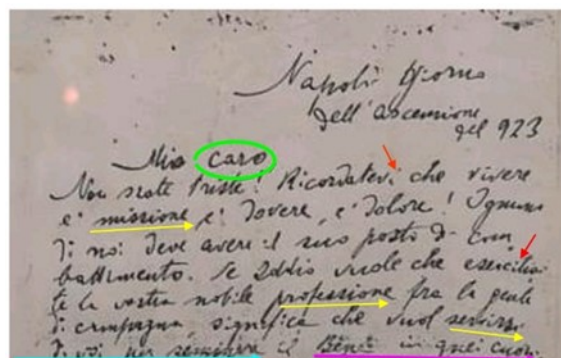 Napoli Giorno
dell'ascensione
del 923
Mio caro
Non siate triste! Ricordatevi che vivere
e' missione, e' dovere, e' dolore! Ognuno
di noi deve avere il suo posto di com
battimento. Se Iddio vuole che esercitia
te la vostra nobile professione fra la gente
di campagna, significa che vuol servirsi
di voi per seminare il bene in quei cuori.